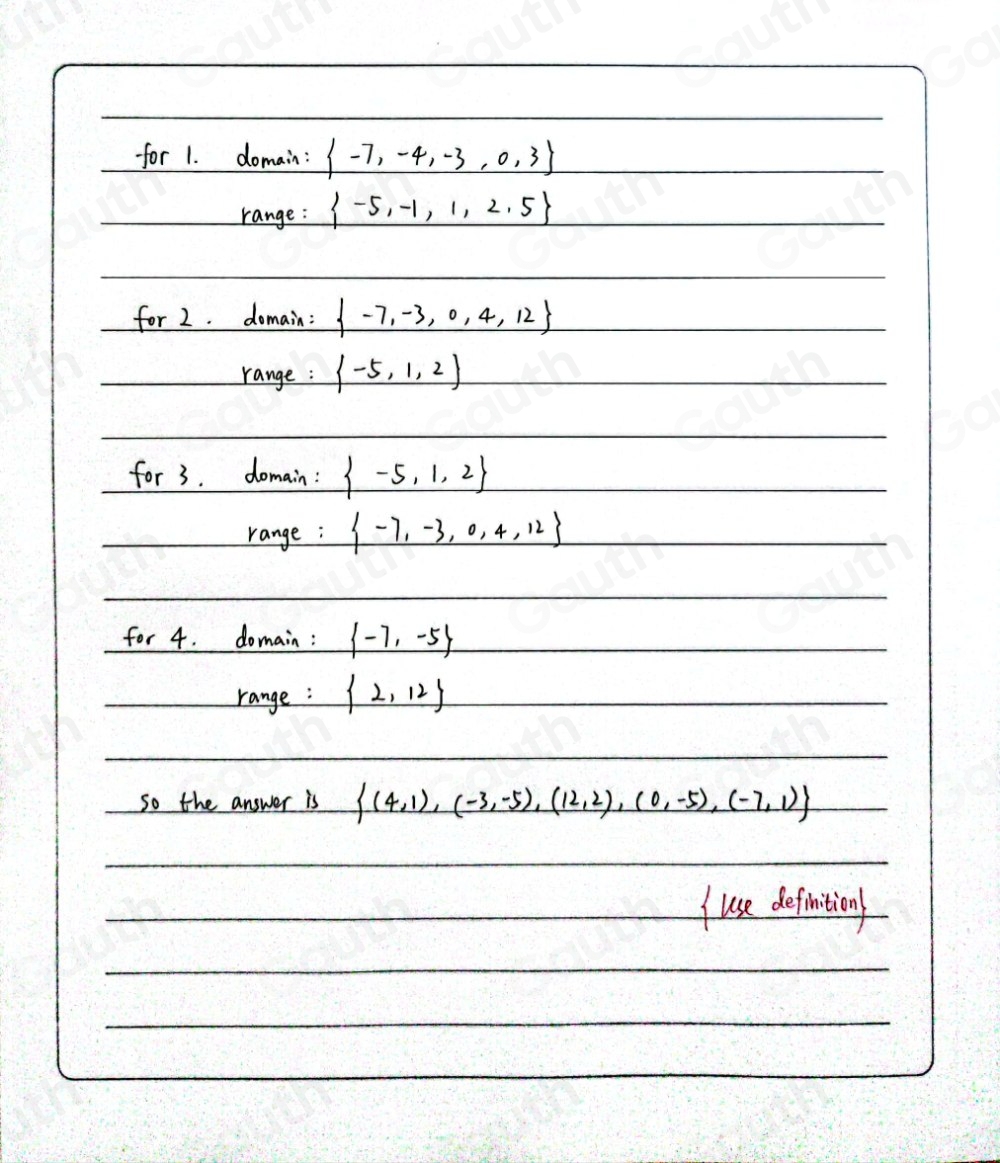 for 1. domain: { -7, -4, -3, 0, 3}
range: { -5, -1, 1, 2, 5}
for 2. domain: { -7, -3, 0, 4, 12}
range: { -5, 1, 2}
for 3. domain: { -5, 1, 2}
range: { -7, -3, 0, 4, 12}
for 4. domain: {-7, -5}
range: { 2, 12}
so the answer is {(4,1), (-3,-5), (12,2), (0,-5), (-7,1)}
{Use definition}